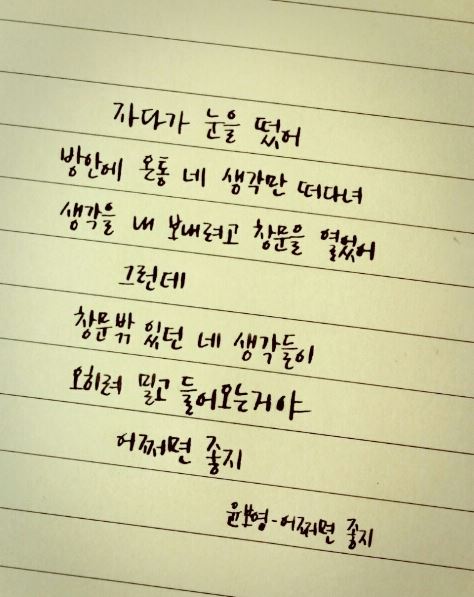 자다가 눈을 떴어
방안에 온통 네 생각만 떠다녀
생각을 내 보내려고 창문을 열었어
그런데
창문밖 있던 네 생각들이
오히려 밀고 들어오는거야
어쩌면 좋지
윤보영-어쩌면 좋지